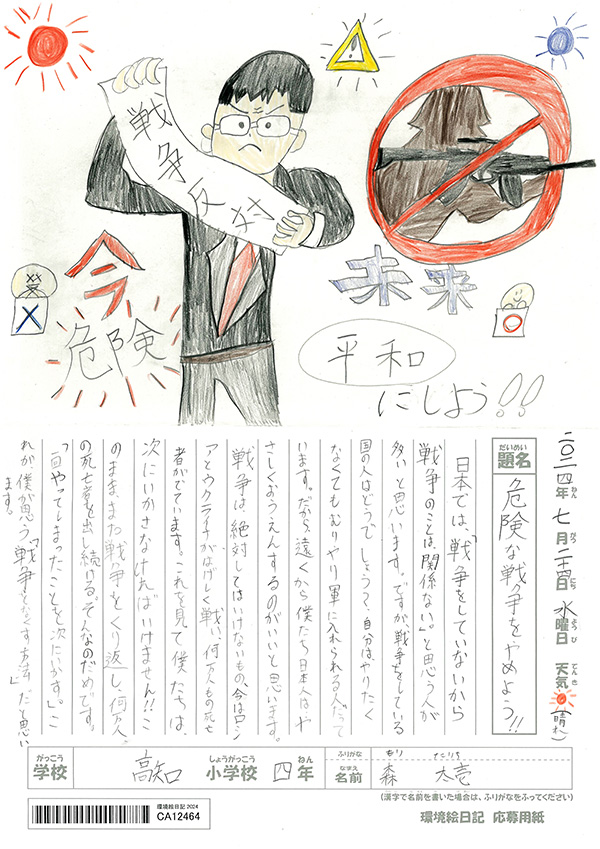 戦争反対
今
危険
未来
平和
にしよう!!
二〇二四年 七月二十四日 水曜日 天気 (晴れ)
ねん がつ にち ようび てんき
だいめい
題名
危険な戦争をやめよう!!
日本では、「戦争をしていないから
戦争のことは関係ない。」と思う人が
多いと思います。ですが、戦争をしている
国の人はどうでしょう?自分はやりたく
なくてもむりやり軍に入れられる人だって
います。だから、遠くから僕たち日本人はや
さしくおうえんするのがいいと思います。
戦争は、絶対してはいけないもの。今はロシ
アとウクライナがはげしく戦い、何万人もの死亡
者がでています。これを見て僕たちは、
次にいかさなければいけません!!こ
のまま、また戦争をくり返し、何万人
の死亡者を出し続ける。そんなのだめです。
「一回やってしまったことを次にいかす。」こ
れが、僕が思う「戦争をなくす方法」だと思い
ます。
がっこう しょうがっこう ねん ふりがな もり たいち
学校 高知 小学校 四年 なまえ 名前 森 太壱
(漢字で名前を書いた場合は、ふりがなをふってください)
環境絵日記 2024
CA12464
環境絵日記 応募用紙